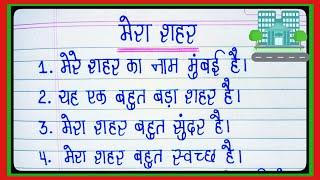 मेरा शहर
1. मेरे शहर का नाम मुंबई है।
2. यह एक बहुत बड़ा शहर है।
3. मेरा शहर बहुत सुंदर है।
4. मेरा शहर बहुत स्वच्छ है।